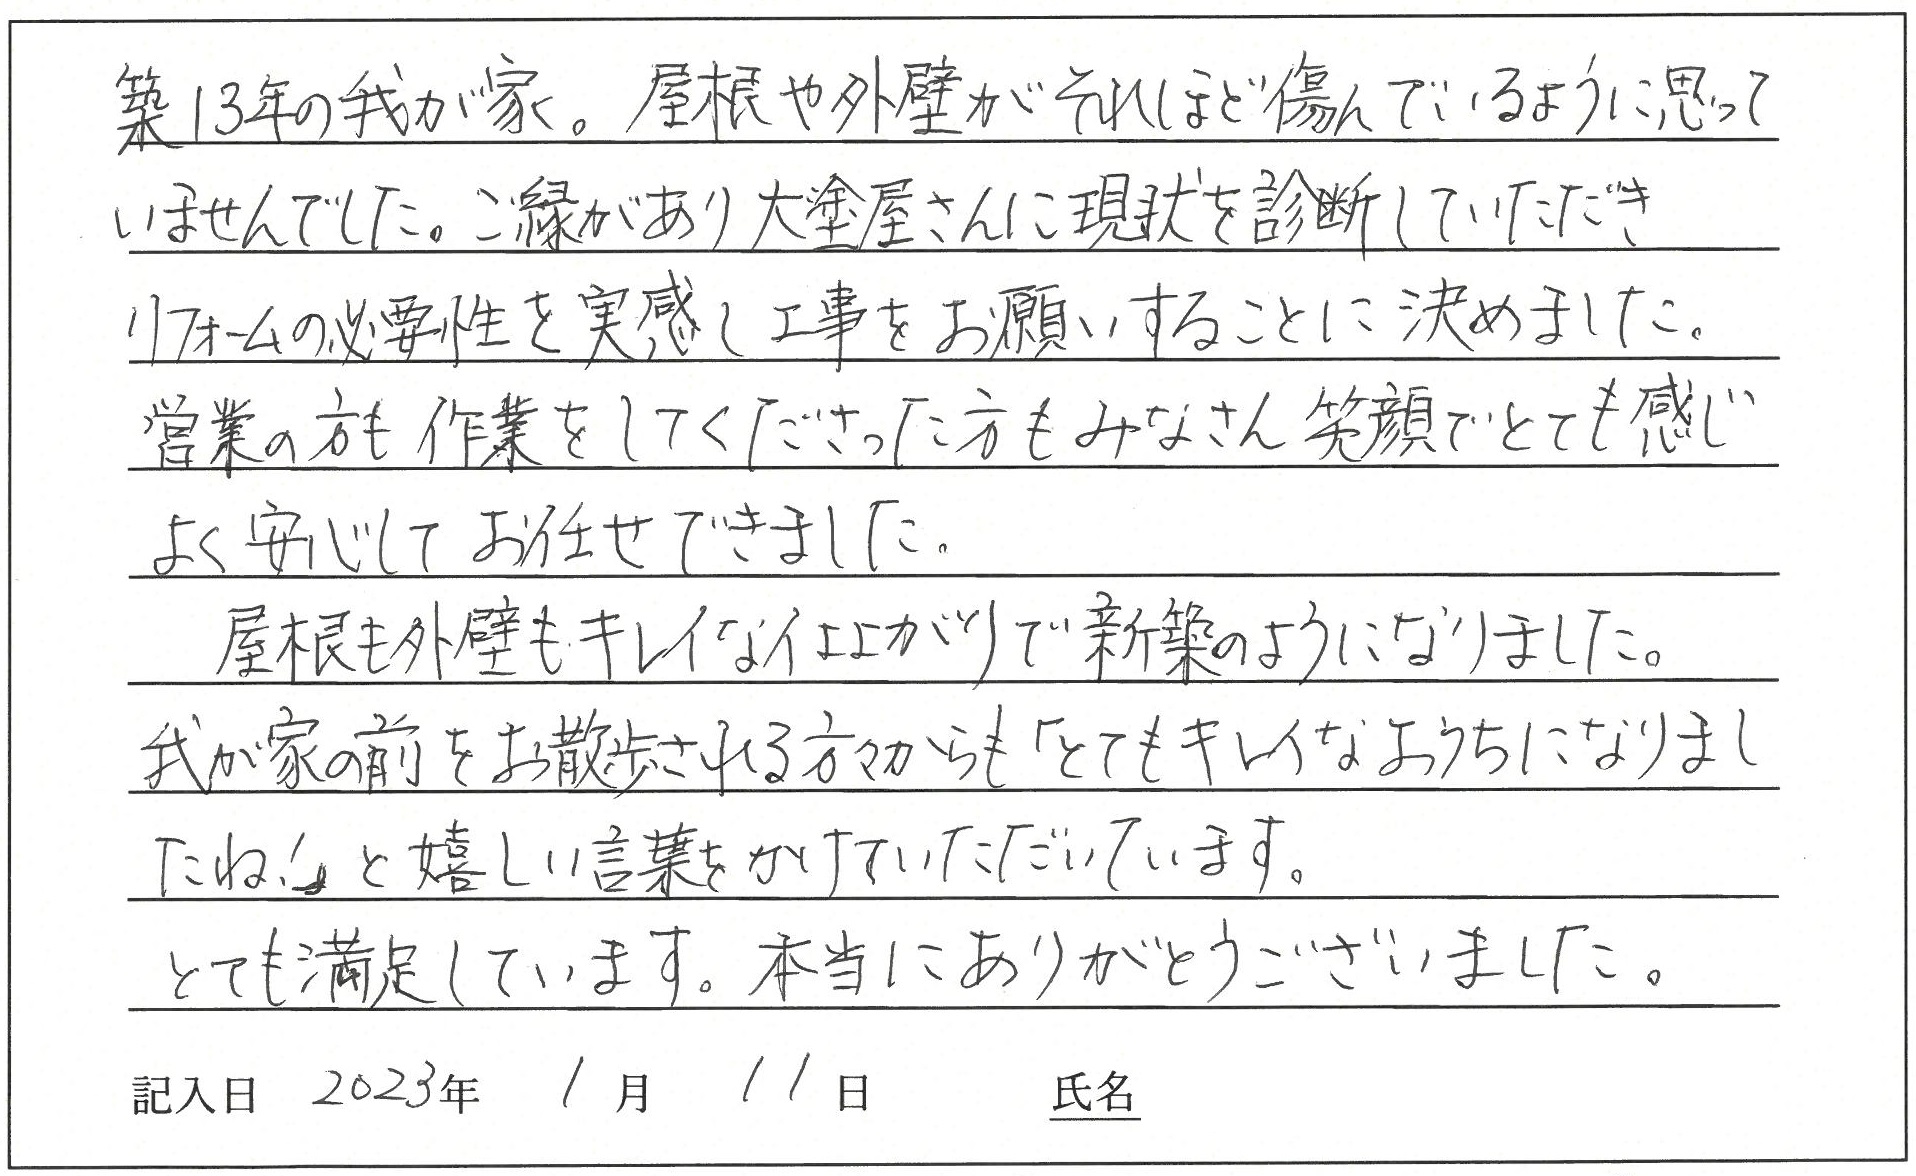 築13年の我が家。屋根や外壁がそれほど傷んでいるように思って
いませんでした。ご縁があり大塗屋さんに現状を診断していただき
リフォームの必要性を実感し工事をお願いすることに決めました。
営業の方も作業をしてくださった方もみなさん笑顔でとても感じ
よく安心してお任せできました。
屋根も外壁もキレイな仕上がりで新築のようになりました。
我が家の前をお散歩される方々からも「とてもキレイなおうちになりまし
たね！」と嬉しい言葉をかけていただいています。
とても満足しています。本当にありがとうございました。
記入日 2023年 1月 11日 氏名